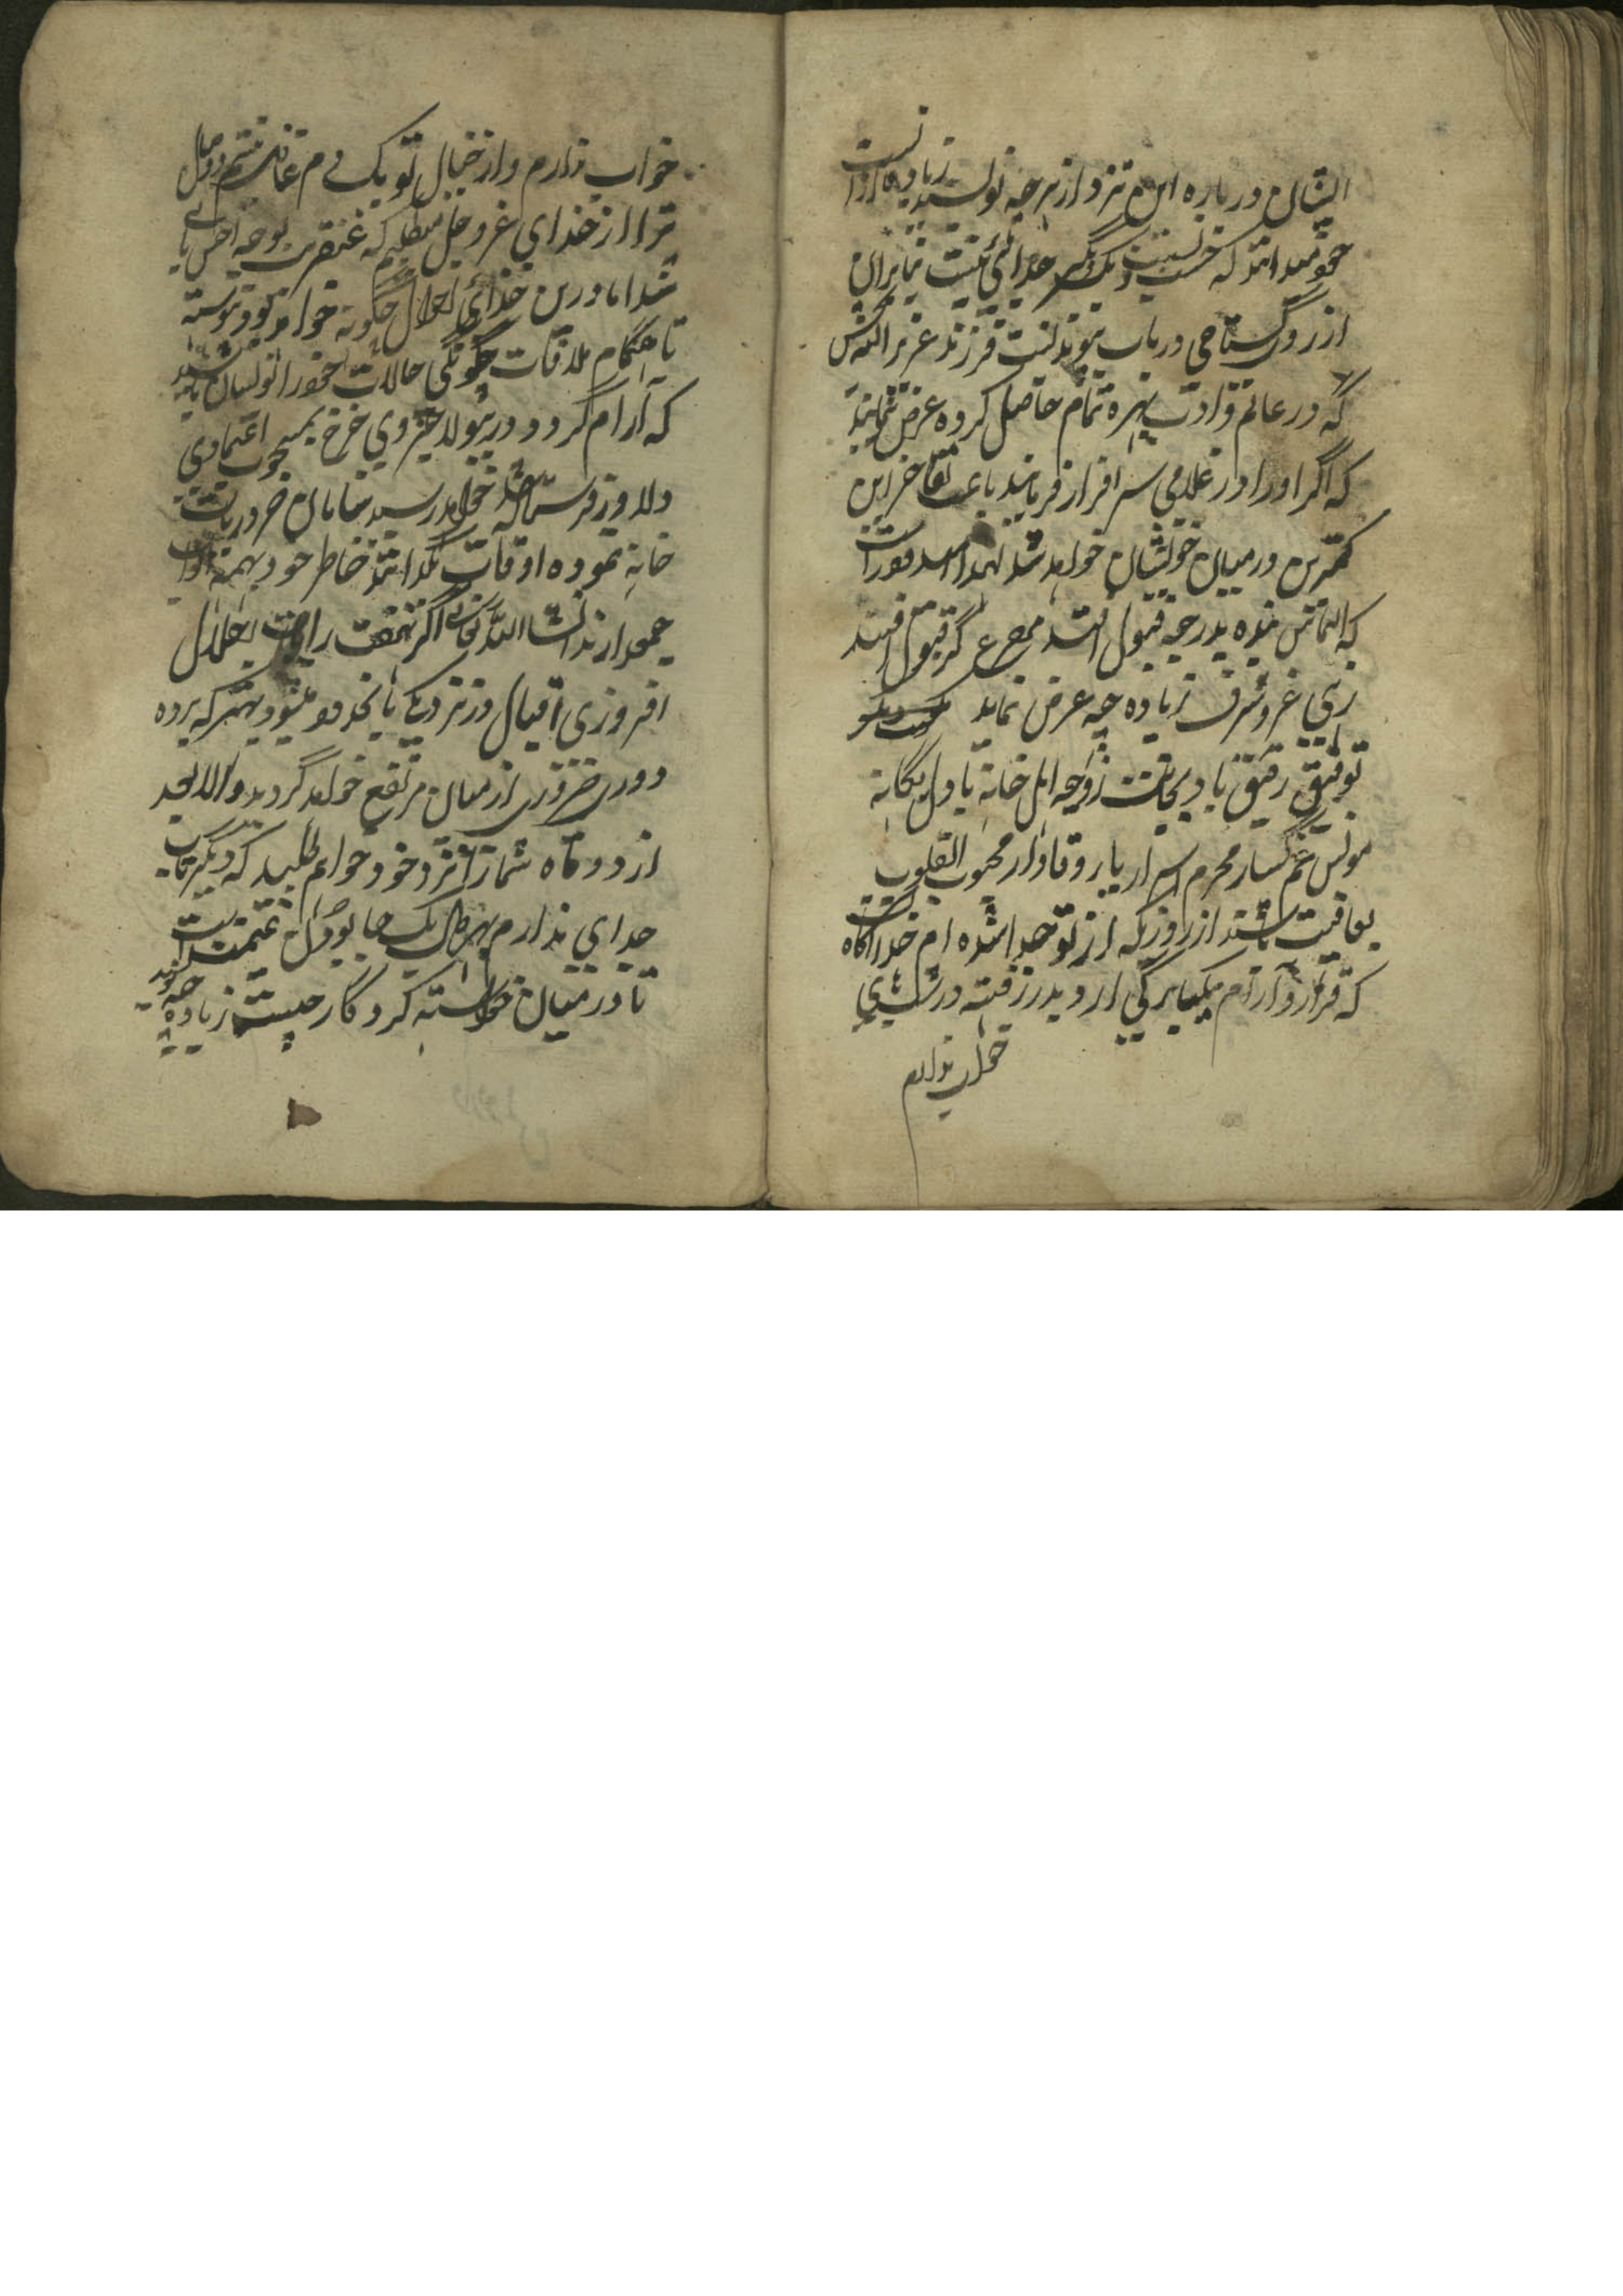 ایشان درباره این نزد از هرچه نویسند زیاده ازانست
چون میدانند که حسب و نسبت یکدیگر جدائی نیست بنابران
از روی گستاخی در باب پیوند نسبت فرزند عزیز
که در علم و ادب بهره تمام حاصل کرده عرض مینماید
که اگر او را در غلامی سرافراز فرمایند باعث تفاخر این
کمترین در میان خویشان خواهد شد لهذا امیدوار است
که التماس بنده بدرجه قبول افتد مصرع گر قبول افتد
زهی عز و شرف زیاده چه عرض نماید
توفیق رفیق باد بجانب زوجه اهل خانه با دل یگانه
مونس غم گسار محرم اسرار یار وفادار محبوب القلوب
بعافیت باشند از روزیکه از تو جدا شده ام خدا آگاه است
که قرار و آرام یکبارگی از دل بدر رفته در شب
خواب ندارم
خواب ندارم و از خیال تو یک دم غافل نیستم وصال
ترا از خدای عز و جل میطلبم که عنقریب بوجه احسن
شد اما درین خدای چگونه خواهد بود پیوسته
تا هنگام ملاقات چگونگی حالات خود را نویسان باشند
که آرام گردد و روی خرج بمحبوب اعتمادی
دلاور فرستاده شد خواهد رسید سامان ضروریات
خانه نموده اوقات بگذرانند خاطر خود بهمه ابواب
جمع دارند انشاء الله تعالی اگر نهضت رایات
افروزی اقبال در نزدیکی بانحدود میشود بهتر که پرده
دوری ضروری از میان مرتفع خواهد گردید والا بعد
از دو ماه شما را نزد خود خواهم طلبید که دیگر تاب
جدای ندارم بهرحال یک جا بودن غنیمت است
تا در میان خواسته کردگار چیست زیاده چه